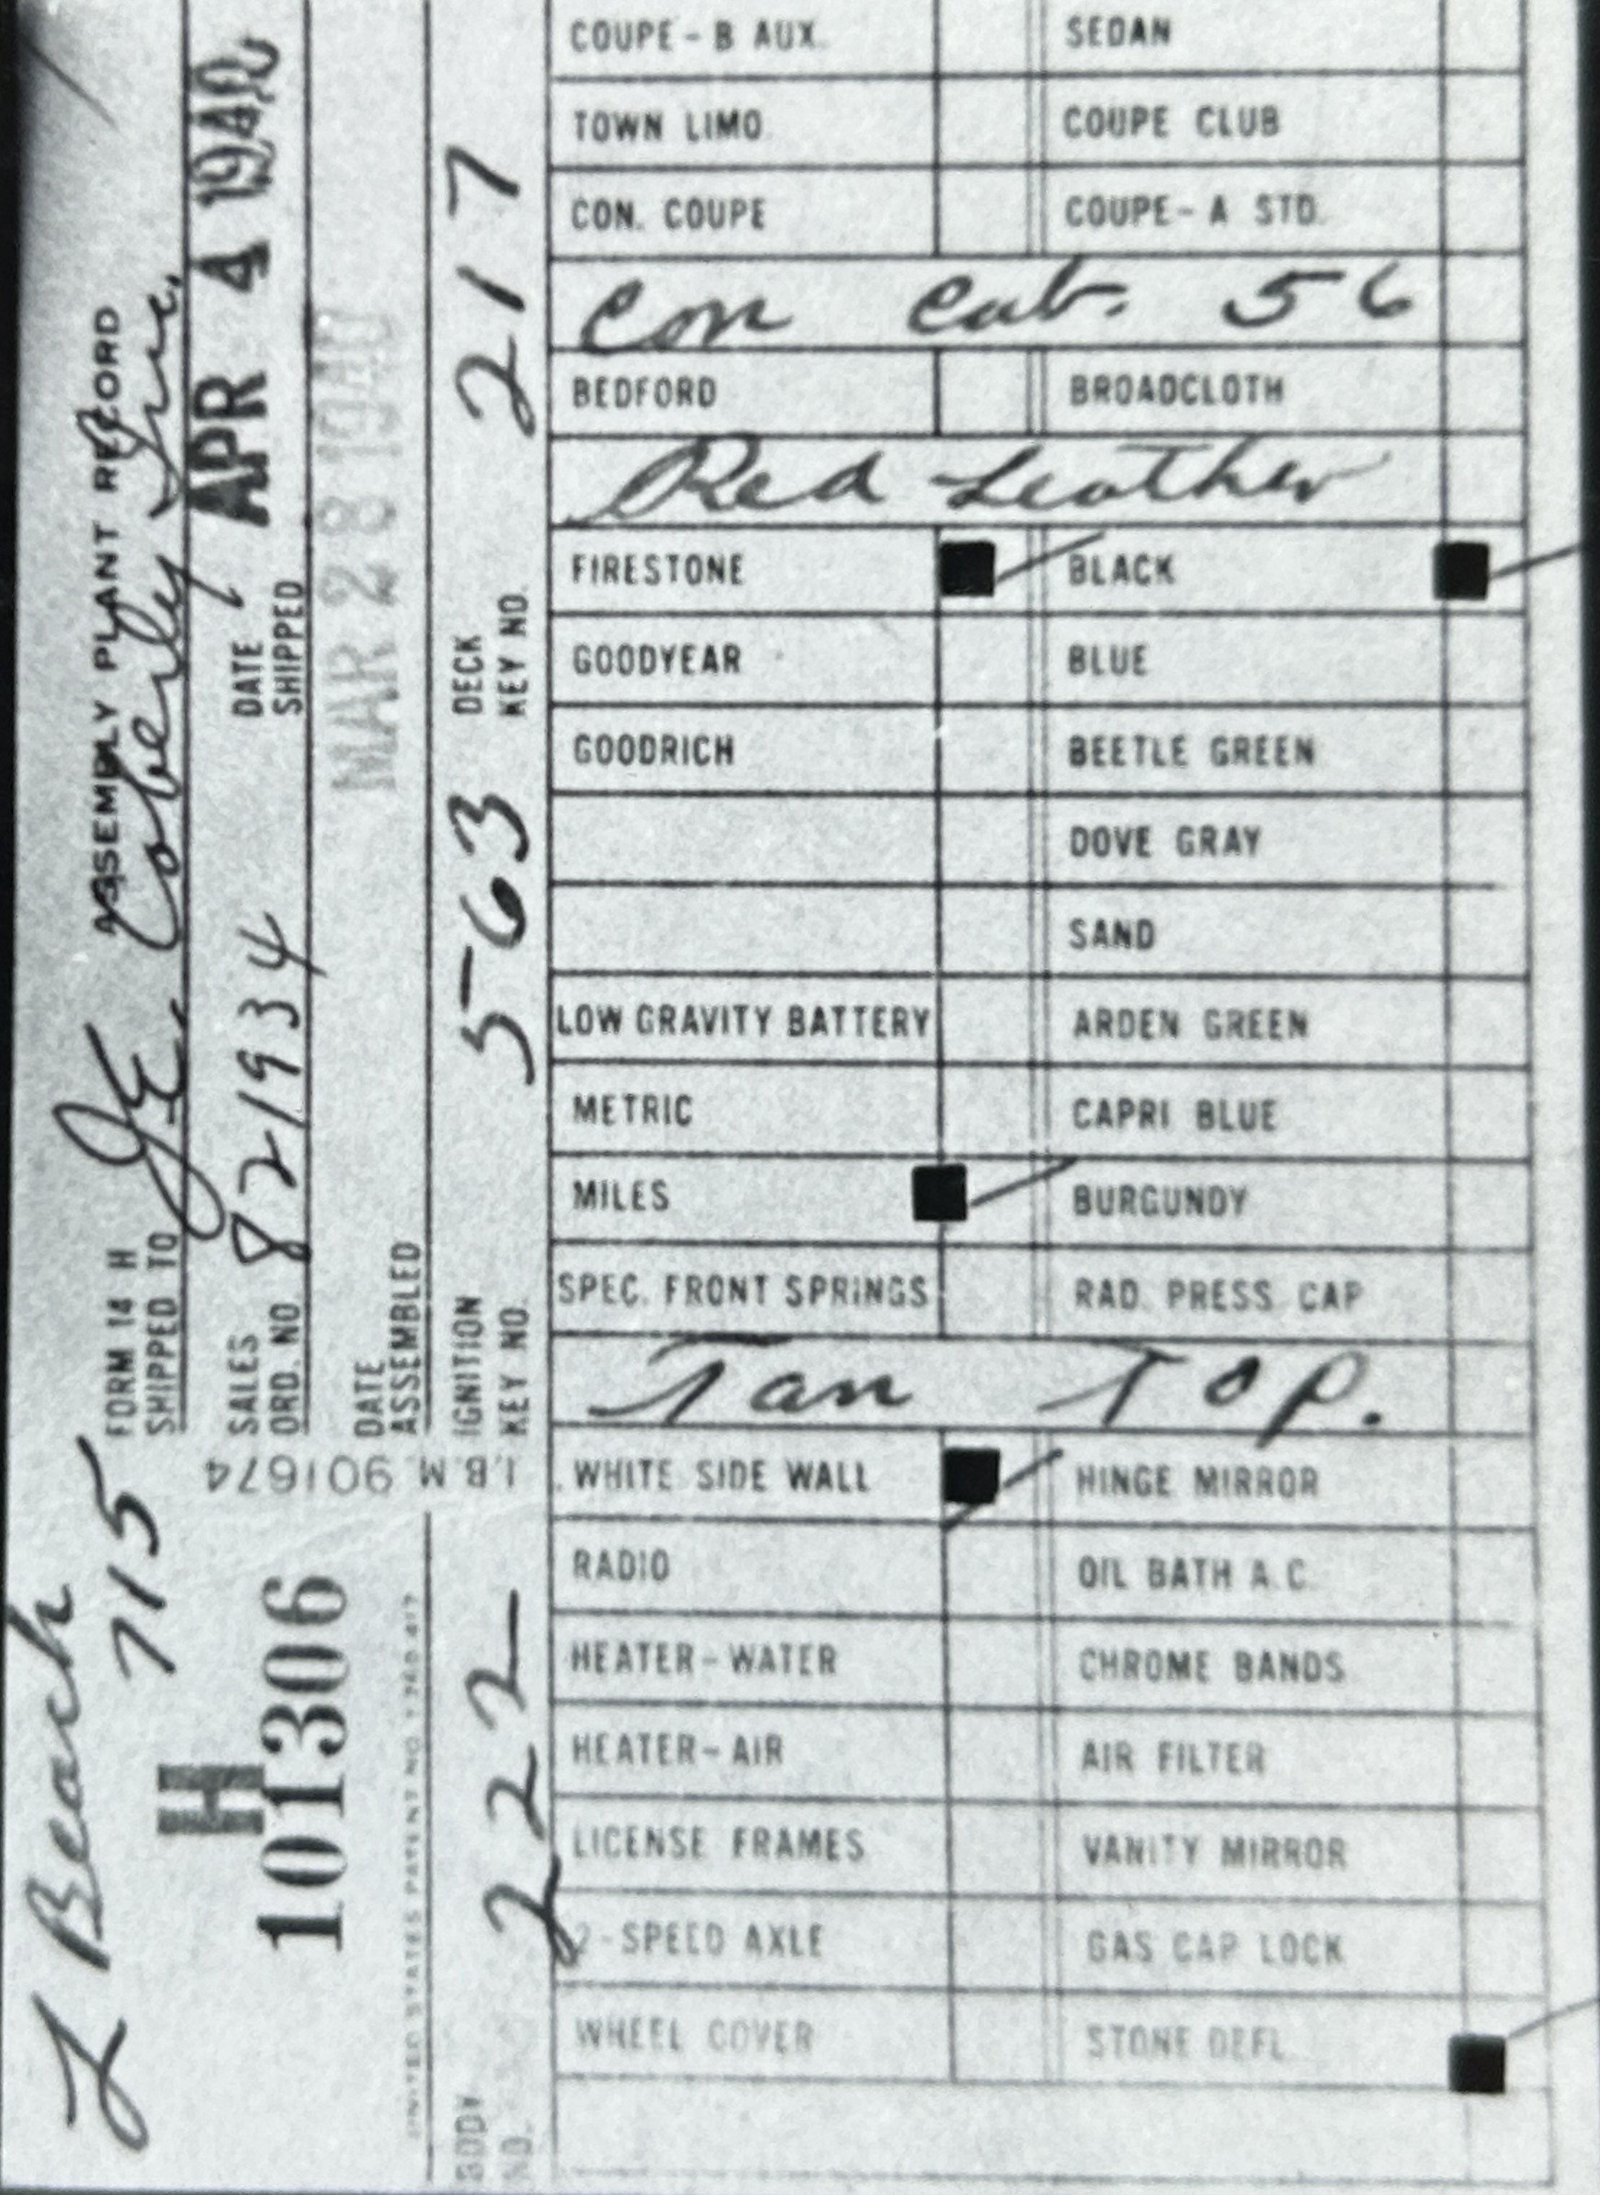 L Beach
715
H
101306
FORM 14 H
ASSEMBLY PLANT RECORD
SHIPPED TO J.E. Coberly Inc.
SALES ORD. NO. 821934
DATE SHIPPED APR 4 1940
DATE ASSEMBLED MAR 28 1940
I.B.M. 901674
BODY NO. 222
IGNITION KEY NO. 563
DECK KEY NO. 217
COUPE - B AUX. SEDAN
TOWN LIMO. COUPE CLUB
CON. COUPE COUPE - A STD.
Con Cab. 56
BEDFORD BROADCLOTH
Red Leather
FIRESTONE BLACK
GOODYEAR BLUE
GOODRICH BEETLE GREEN
DOVE GRAY
SAND
LOW GRAVITY BATTERY ARDEN GREEN
METRIC CAPRI BLUE
MILES BURGUNDY
SPEC. FRONT SPRINGS RAD. PRESS. CAP
Tan Top.
WHITE SIDE WALL HINGE MIRROR
RADIO OIL BATH A.C.
HEATER - WATER CHROME BANDS
HEATER - AIR AIR FILTER
LICENSE FRAMES VANITY MIRROR
2 - SPEED AXLE GAS CAP LOCK
WHEEL COVER STONE DEFL.
UNITED STATES PATENT NO.